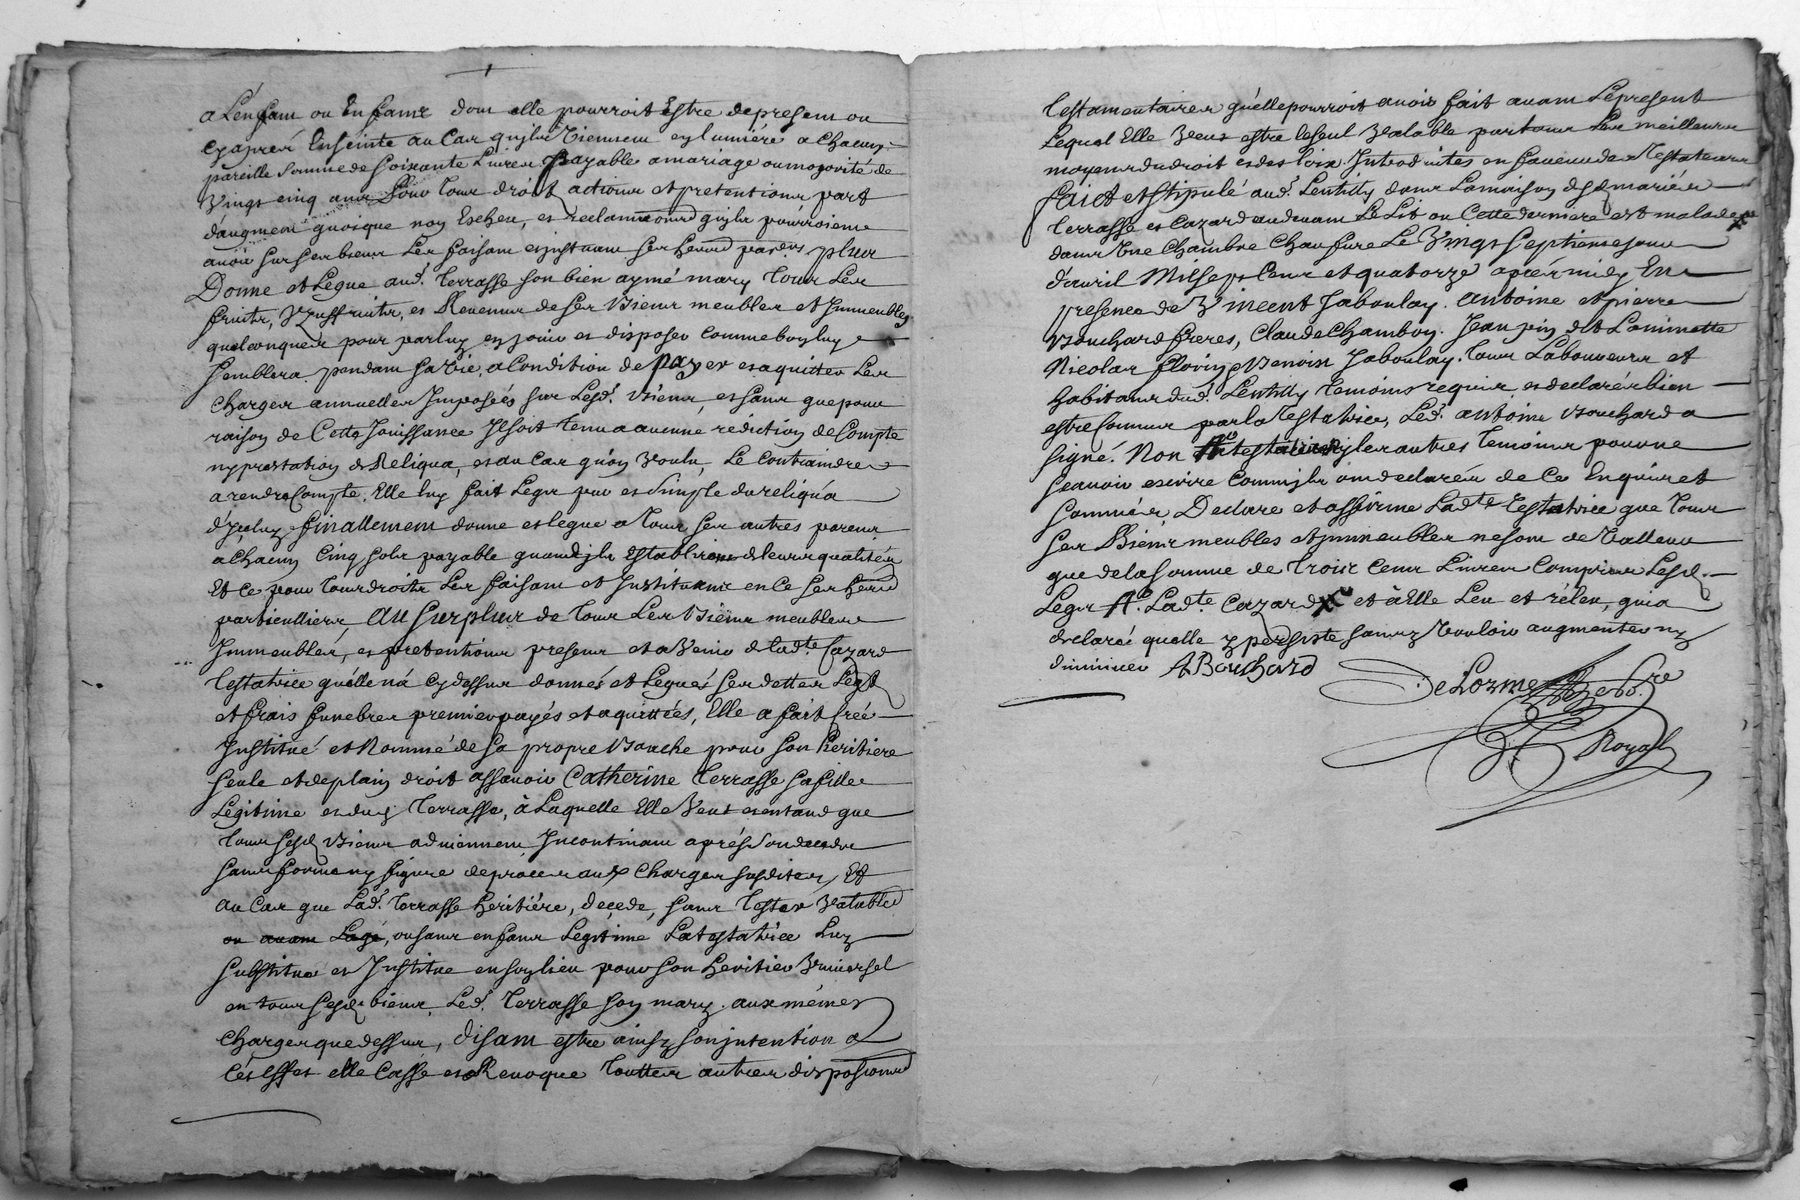 a L'enfam ou Enfams dom elle pourroit Estre depresem ou
cyaprés Enseinte au Cas quils Viennem en lumiére a chacun
pareille Somme de Soixante Livres payable a mariage ou majorité de
Vingt cinq ans Pour tous droits actions et pretentions part
d'augment quoique non Escheu, et reclamaons quils pourroiem
avoir sur ses biens Les faisam et instituam ses herers parers plus
Donne et Legue aud. Terrasse son bien aymé mary tous Les
fruits, Vzuffruits, et Revenus de ses Biens meubles et Immeubles
quelconques pour par luy en jouir et disposer comme bon luy
semblera pendam sa vie, a Condition de payer et aquitter Les
charges annuelles Imposées sur Lesd. Biens, et sans que pour
raison de Cette Jouissance Il soit tenu a aucune rédiction de Compte
ny prestation de Reliqua, et au Cas qu'on Voulu, Le Contraindre
a rendre Compte, Elle luy fait Legs pur et simple du reliqua
d'Iceluy finallement donne et legue a tous ses autres parens
a chacun Cinq sols payable quand ils establirons de leurs qualités
Et ce pour tous droits Les faisam et Instituans en Ce ses herers
particulliers Au surplus de tous Les Biens meubles
Immeubles, et pretentions presens et a Venir de lad.te Cazard
testatrice quelle n'a cy dessus donnés et Legués ses dettes Legs
et frais funebres premier payés et aquittées, Elle a fait créé
Institué et Nommé de sa propre Bouche pour son heritiere
seule et de plain droit assavoir Catherine Terrasse sa fille
Légitime et dud. Terrasse, à Laquelle Elle Veut et entand que
tous sesd. Biens adviennem Incontinam aprés Son decedx
sans forme ny figure de procez aux Charges susdites, Et
au Cas que Lad. Terrasse heritiére, decede, sans tester Valable
ou avam L'agé, ou sans enfans Legitime La testatrice Luy
substitue et Institue en son lieu pour son heritier Vniversel
en tous sesd. biens, Led. Terrasse son mary aux mémes
charges que dessus, disam estre ainsy son intention a
Cés Effet elle Casse et Revoque toutter autres disposions
testamentaires qu'elle pourroit avoir fait avam Le present
Lequel Elle Veut estre le seul Valable par tous Les meilleurs
moyens du droit et des loix Introduites en faveur des Testateurs
faict et stipulé aud. Lentilly dans La maison desd. mariés
Terrasse et Cazard audevam Le Lit ou Cette derniere est malade x
dans Vne Chambre Chaufure Le Vingt septieme jour
d'avril Mil sept Cens et quatorze aprés midy En
presence de Vincent Jaboulay. Antoine et pierre
Bouchard freres, Claude Chambon. Jean pin dit Laminette
Nicolas florin et Benoist Jaboulay tous Laboureurs et
habitans dud. Lentilly temoins requis, et declarés bien
estre Connus par la Testatrice, Led. Antoine Bouchard a
signé. Non La testatrice ny les autres temoins pour ne
sçavoir escrire Comme ils om declarés de Ce Enquis et
sommés, Declare et affirme Lad.te Testatrice que tous
ses Biens meubles et Immeubles ne som de Valleur
que de la somme de trois Cens Livres Compris Lesd.
Legs A. Lad.te Cazard x et à Elle Leu et rêleu, qui a
declaré quelle y persiste sans y Vouloir augmenter ny
diminuer A Bouchard
DeLorme No.re
Royal